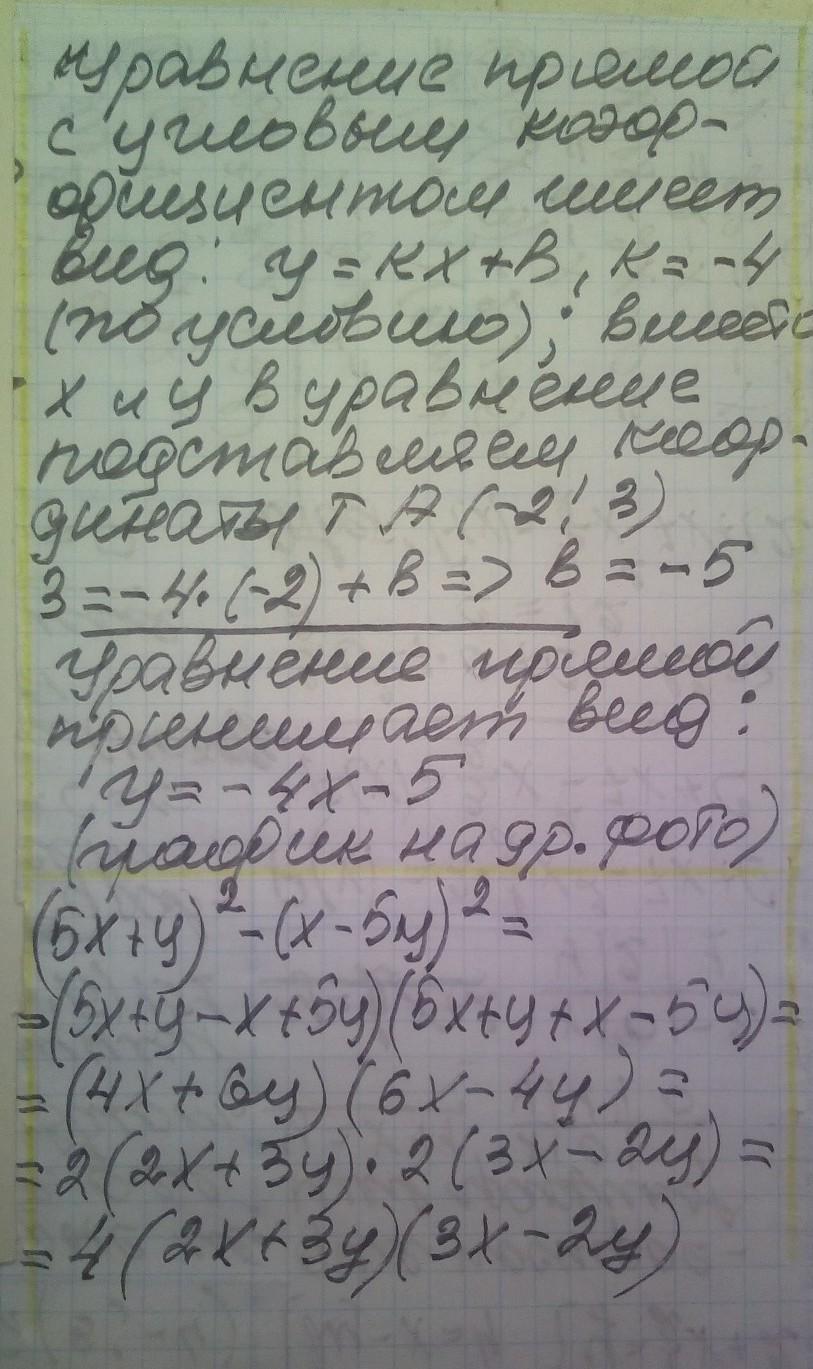 Уравнение прямой
с угловым коэф-
фициентом имеет
вид: y = kx + b, k = -4
(по условию); вместо
x и y в уравнение
подставляем коор-
динаты т A (-2; 3)
3 = -4·(-2) + b => b = -5
Уравнение прямой
принимает вид:
y = -4x - 5
(график на др. фото)
(5x+y)² - (x-5y)² =
= (5x+y-x+5y)(5x+y+x-5y) =
= (4x+6y)(6x-4y) =
= 2(2x+3y)·2(3x-2y) =
= 4(2x+3y)(3x-2y)